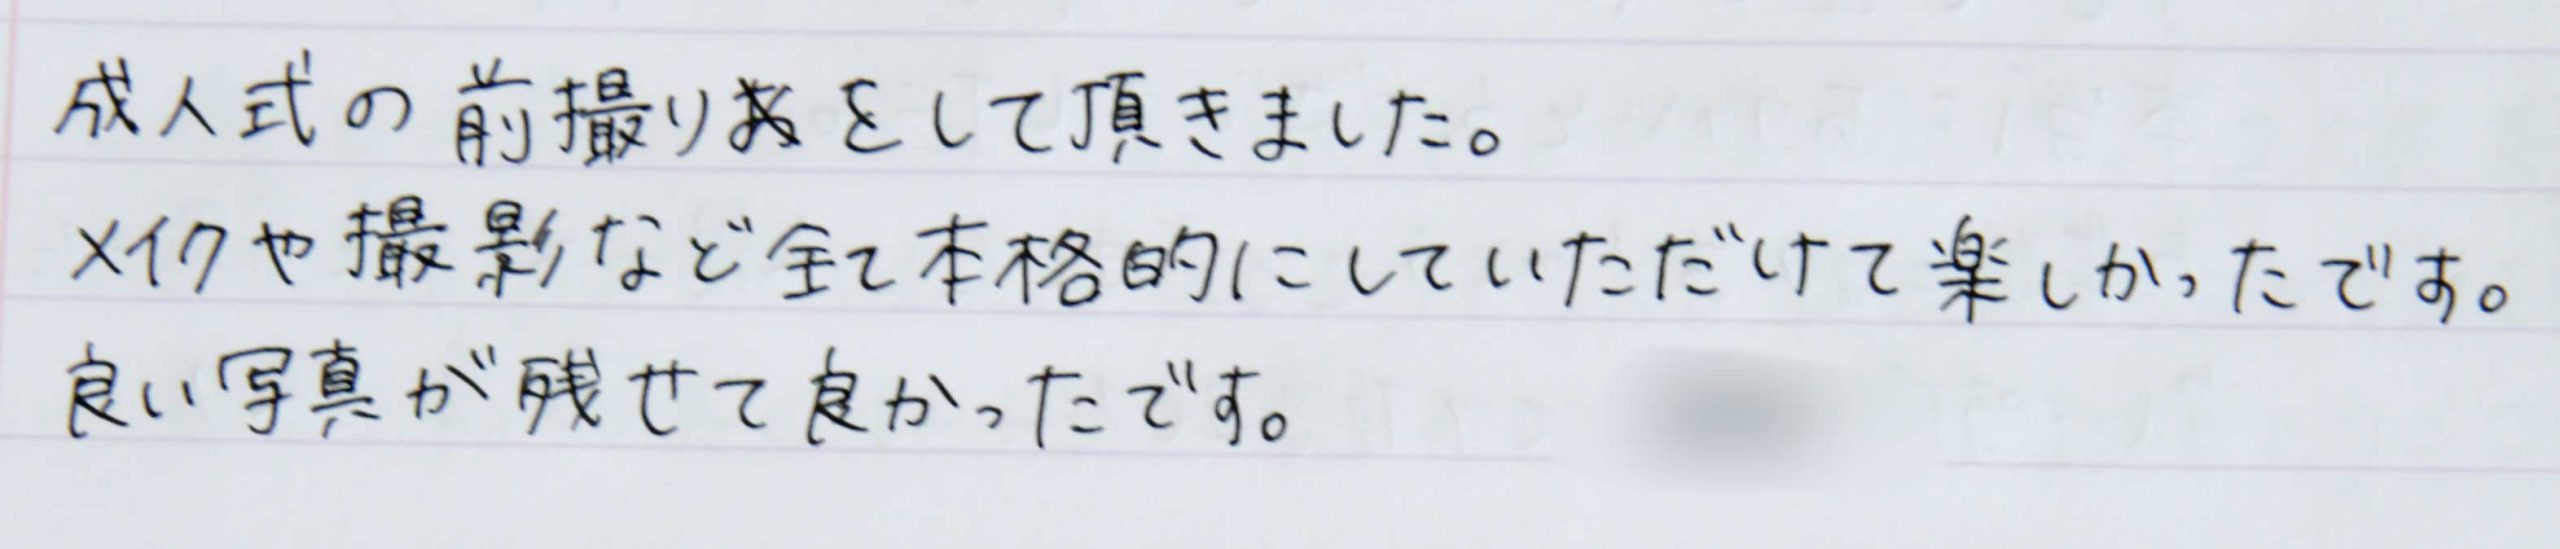 成人式の前撮りをして頂きました。
メイクや撮影など全て本格的にしていただけて楽しかったです。
良い写真が残せて良かったです。